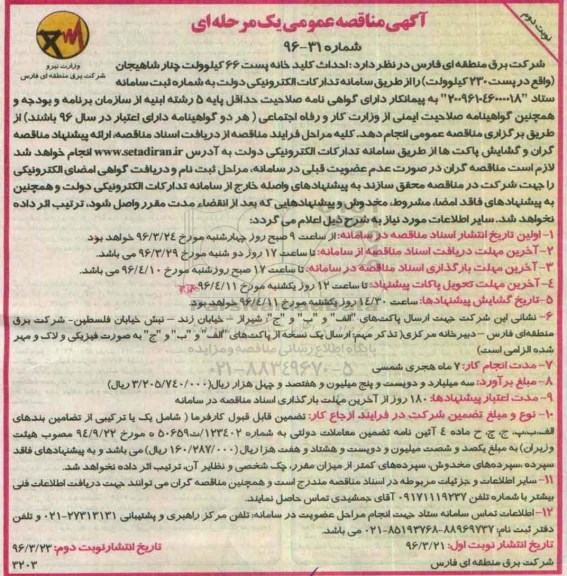 نوبت دوم
آگهی مناقصه عمومی یک مرحله ای
شماره ۳۱-۹۶
وزارت نیرو
شرکت برق منطقه ای فارس
شرکت برق منطقه ای فارس در نظر دارد: احداث کلید خانه پست ۶۶ کیلوولت چنار شاهیجان
(واقع در پست ۲۳۰ کیلوولت) را از طریق سامانه تدارکات الکترونیکی دولت به شماره ثبت سامانه
ستاد "۲۰۰۹۶۱۰۴۶۰۰۰۰۱۸" به پیمانکار دارای گواهی نامه صلاحیت حداقل پایه ۵ رشته ابنیه از سازمان برنامه و بودجه و
همچنین گواهینامه صلاحیت ایمنی از وزارت کار و رفاه اجتماعی ( هر دو گواهینامه دارای اعتبار در سال ۹۶ باشند) از
طریق برگزاری مناقصه عمومی انجام دهد. کلیه مراحل فرایند مناقصه از دریافت اسناد مناقصه، ارائه پیشنهاد مناقصه
گران و گشایش پاکت ها از طریق سامانه تدارکات الکترونیکی دولت به آدرس www.setadiran.ir انجام خواهد شد
لازم است مناقصه گران در صورت عدم عضویت قبلی در سامانه، مراحل ثبت نام و دریافت گواهی امضای الکترونیکی
را جهت شرکت در مناقصه محقق سازند به پیشنهادهای واصله خارج از سامانه تدارکات الکترونیکی دولت و همچنین
به پیشنهادهای فاقد امضا، مشروط، مخدوش و پیشنهادهایی که بعد از انقضاء مدت مقرر واصل شود، ترتیب اثر داده
نخواهد شد. سایر اطلاعات مورد نیاز به شرح ذیل اعلام می گردد:
۱- اولین تاریخ انتشار اسناد مناقصه در سامانه: از ساعت ۹ صبح روز چهارشنبه مورخ ۹۶/۳/۲۴ خواهد بود
۲- آخرین مهلت دریافت اسناد مناقصه از سامانه: تا ساعت ۱۷ روز دو شنبه مورخ ۹۶/۳/۲۹ می باشد.
۳- آخرین مهلت بارگذاری اسناد مناقصه در سامانه: تا ساعت ۱۷ صبح روز شنبه مورخ ۹۶/۴/۱۰ می باشد.
۴- آخرین مهلت تحویل پاکات پیشنهاد: تا ساعت ۱۲ روز یکشنبه مورخ ۹۶/۴/۱۱
۵- تاریخ گشایش پیشنهادها: ساعت ۱۴/۳۰ روز یکشنبه مورخ ۹۶/۴/۱۱ خواهد بود
۶- نشانی این شرکت جهت ارسال پاکت‌های "الف" و "ب" و "ج": شیراز – خیابان زند – نبش خیابان فلسطین- شرکت برق
منطقه‌ای فارس –دبیرخانه مرکزی( تذکر مهم: ارسال یک نسخه از پاکت‌های "الف" و "ب" و "ج" به صورت فیزیکی و لاک و مهر
شده الزامی است)
پایگاه اطلاع رسانی مناقصه و مزایده
۰۲۱-۸۸۳۴۹۶۷۰-۵
۷- مدت انجام کار: ۷ ماه هجری شمسی
۸- مبلغ برآورد: سه میلیارد و دویست و پنج میلیون و هفتصد و چهل هزار ریال( ۳/۲۰۵/۷۴۰/۰۰۰ ریال)
۹- مدت اعتبار پیشنهادها: ۱۸۰ روز از آخرین مهلت بارگذاری اسناد مناقصه در سامانه
۱۰- نوع و مبلغ تضمین شرکت در فرایند ارجاع کار: تضمین قابل قبول کارفرما ( شامل یک یا ترکیبی از تضامین بندهای
الف،ب،پ، ج، چ، ح ماده ۴ آئین نامه تضمین معاملات دولتی به شماره ۱۲۳۴۰۲/ت۵۰۶۵۹ ه مورخ ۹۴/۹/۲۲ مصوب هیئت
وزیران) به مبلغ یکصد و شصت میلیون و دویست و هشتاد و هفت هزار ریال( ۱۶۰/۲۸۷/۰۰۰ ریال) می باشد و به پیشنهادهای فاقد
سپرده ،سپرده‌های مخدوش، سپرده‌های کمتر از میزان مقرر، چک شخصی و نظایر آن، ترتیب اثر داده نخواهد شد.
۱۱- سایر اطلاعات و جزئیات مربوطه در اسناد مناقصه مندرج است و همچنین مناقصه گران می توانند جهت دریافت اطلاعات فنی
بیشتر با شماره تلفن ۰۹۱۷۱۱۱۹۲۳۷ آقای جمشیدی تماس حاصل نمایند.
۱۲- اطلاعات تماس سامانه ستاد جهت انجام مراحل عضویت در سامانه: تلفن مرکز راهبری و پشتیبانی ۲۷۳۱۳۱۳۱-۰۲۱ و تلفن
دفتر ثبت نام: ۸۸۹۶۹۷۳۷-۸۵۱۹۳۷۶۸-۰۲۱ می باشد.
تاریخ انتشار نوبت اول: ۹۶/۳/۲۱
تاریخ انتشار نوبت دوم: ۹۶/۳/۲۳
شرکت برق منطقه ای فارس
۳۲۰۳